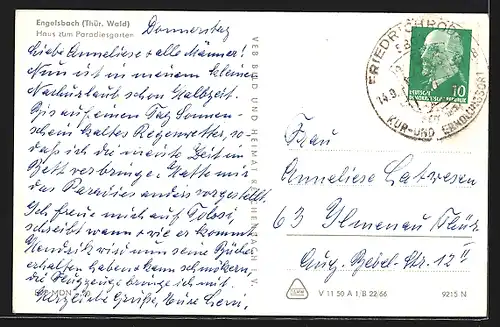 Engelsbach (Thür. Wald)
Haus zum Paradiesgarten
Donnerstag
Liebe Anneliese + alle Männer!
Nun ist in meinem kleinen
Nachurlaub schon Halbzeit.
Bis auf einen Tag Sonnen-
schein kalter Regenwetter, so-
daß ich die meiste Zeit im
Bett verbringe. Hatte mir
das Paradies anders vorgestellt.
Ich freue mich auf
schreibt wann + wie er kommt
Hendrik wird nun seine Bücher
erhalten haben + kann schmökern,
die bringe ich mit.
Herzliche Grüße, Eure
VEB BILD UND HEIMAT REICHENBACH I. V.
FRIEDRICHRODA
KUR- UND ERHOLUNGSORT
DEUTSCHE
DEMOKRATISCHE REPUBLIK
10
Frau
Anneliese
63 Ilmenau Thür.
Aug. Bebel-Str. 12 II
V 11 50 A 1/B 22/66
9215 N